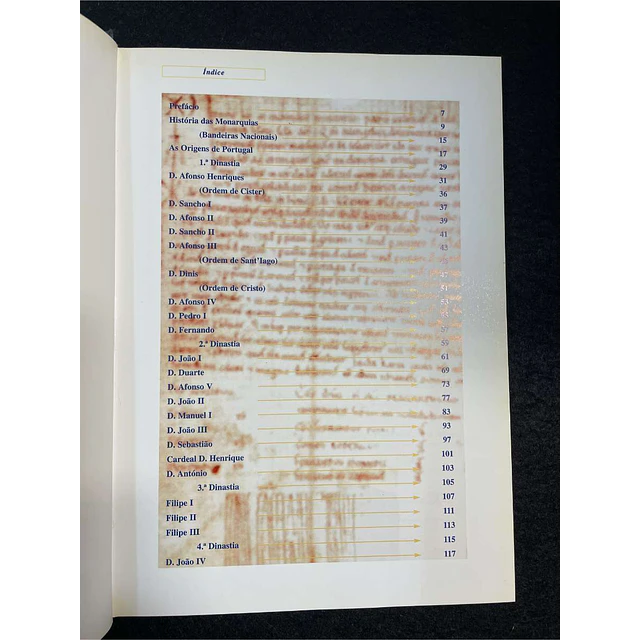 Índice
Prefácio 7
História das Monarquias 9
(Bandeiras Nacionais) 15
As Origens de Portugal 17
1.ª Dinastia 29
D. Afonso Henriques 31
(Ordem de Cister) 36
D. Sancho I 37
D. Afonso II 39
D. Sancho II 41
D. Afonso III 43
(Ordem de Sant'Iago)
D. Dinis 47
(Ordem de Cristo)
D. Afonso IV 53
D. Pedro I
D. Fernando 57
2.ª Dinastia 59
D. João I 61
D. Duarte 69
D. Afonso V 73
D. João II 77
D. Manuel I 83
D. João III 93
D. Sebastião 97
Cardeal D. Henrique 101
D. António 103
3.ª Dinastia 105
Filipe I 107
Filipe II 111
Filipe III 113
4.ª Dinastia 115
D. João IV 117